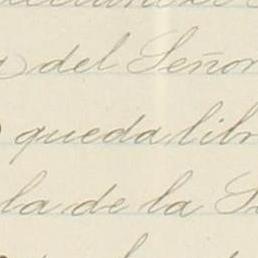 del Señor
queda libr
la de la S